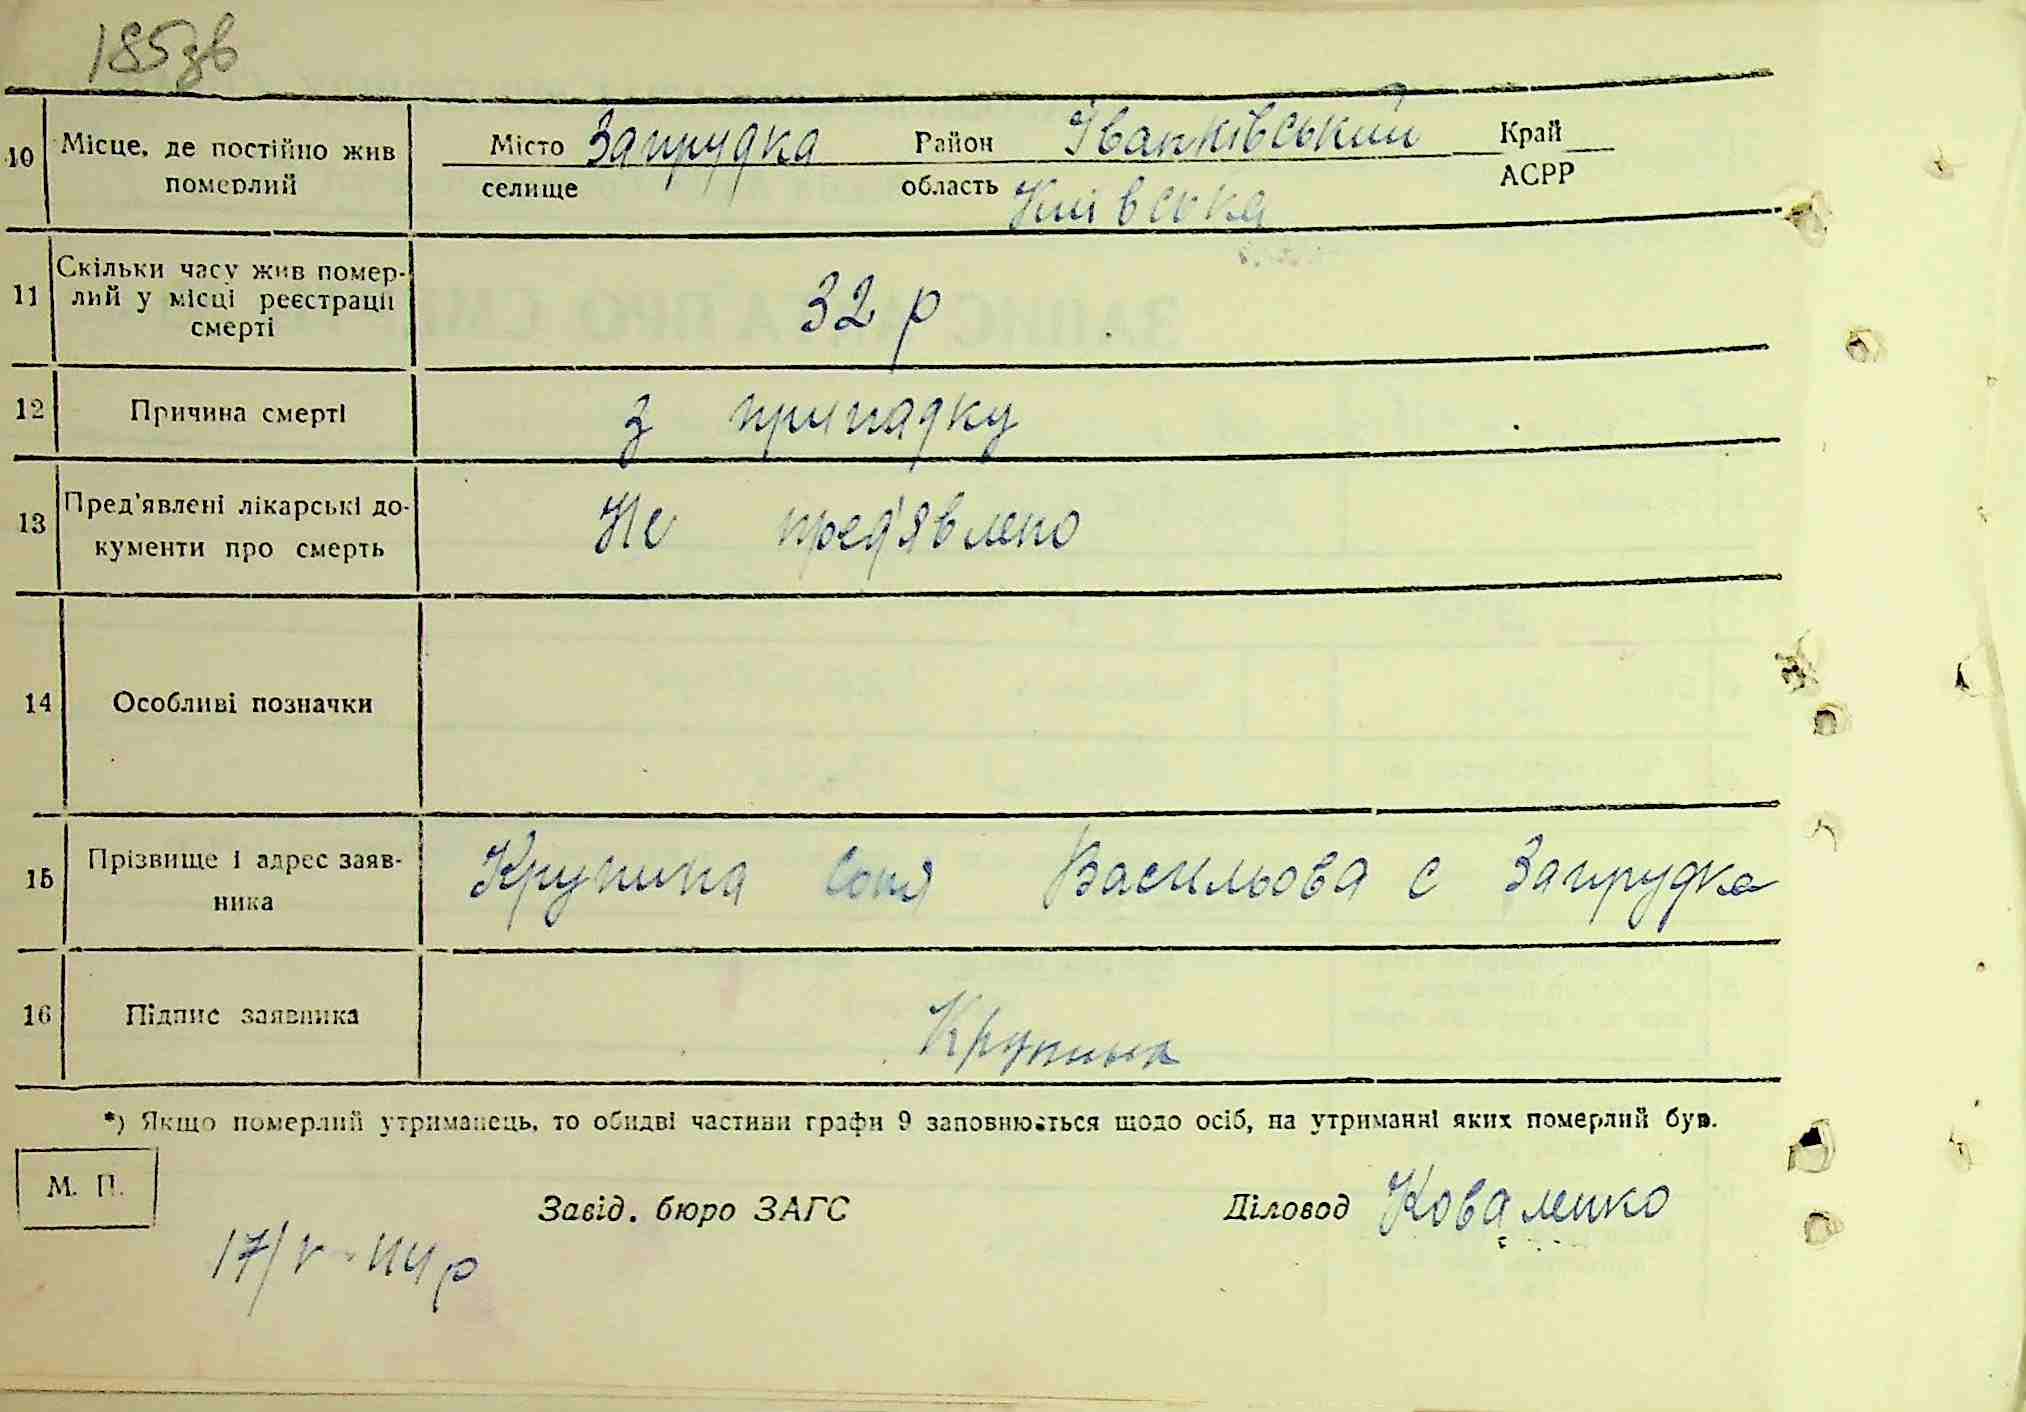 185зв
10 Місце, де постійно жив померлий
Місто Запрудка Район Іванківський Край
селище область Київська АСРР
11 Скільки часу жив помер-
лий у місці реєстрації
смерті
32 р
12 Причина смерті з припадку
13 Пред'явлені лікарські до-
кументи про смерть
Не пред'явлено
14 Особливі позначки
15 Прізвище і адрес заяв-
ника
Крупина Соня Васильова с Запрудка
16 Підпис заявника Крупина
*) Якщо померлий утриманець, то обидві частини графи 9 заповнюється щодо осіб, на утриманні яких померлий був.
М. П.
Завід. бюро ЗАГС Діловод Коваленко
17/V